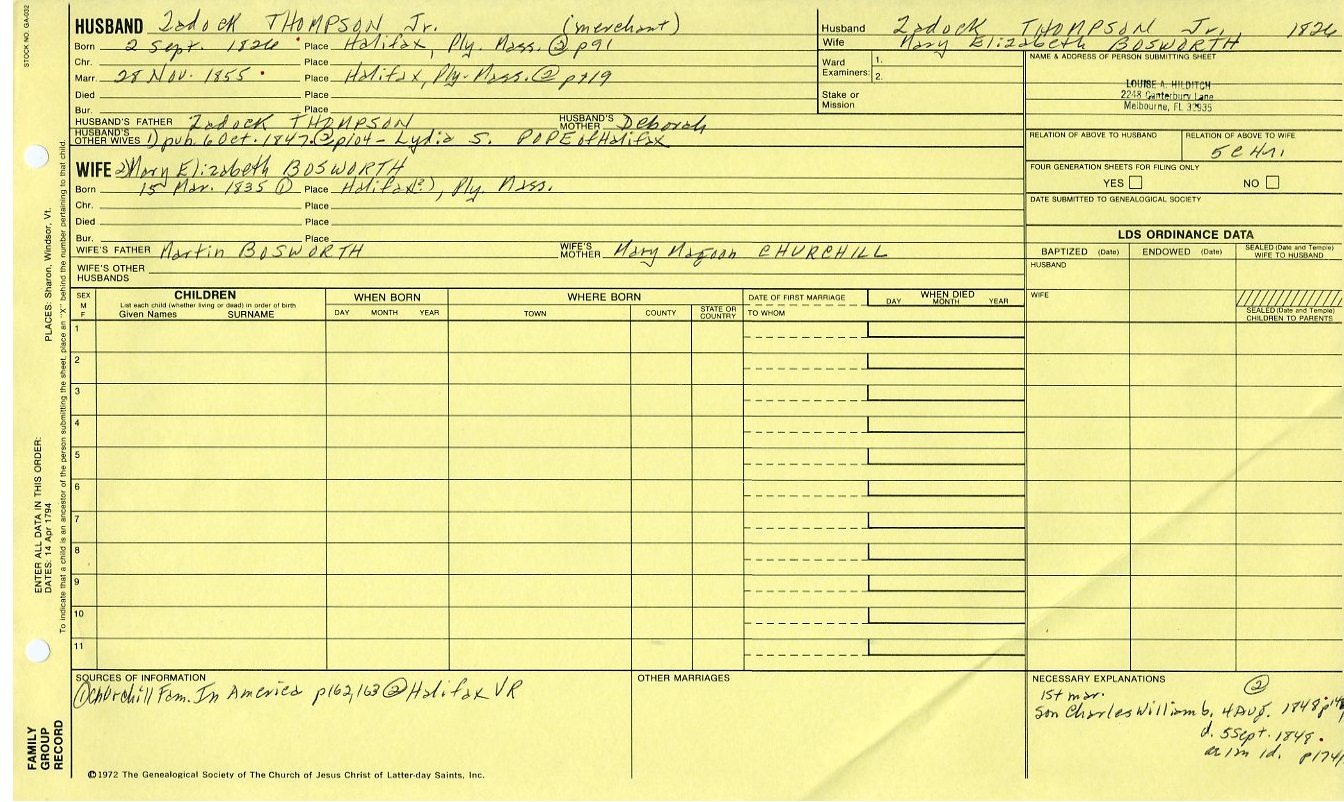 STOCK NO. GA-032
HUSBAND Zadock THOMPSON Jr. (merchant)
Born 2 Sept. 1826 Place Halifax, Ply. Mass. ② p91
Chr. Place
Marr. 28 Nov. 1855 Place Halifax, Ply-Mass. ②
Died Place
Bur. Place
HUSBAND'S FATHER Zadock THOMPSON HUSBAND'S MOTHER Deborah
HUSBAND'S OTHER WIVES 1) pub. 6 Oct. 1847. ② p104 - Lydia S. POPE of Halifax
WIFE 2) Mary Elizabeth BOSWORTH
Born 15 Mar. 1835 ① Place Halifax(?), Ply. Mass.
Chr. Place
Died Place
Bur. Place
WIFE'S FATHER Martin BOSWORTH WIFE'S MOTHER Mary Magoon CHURCHILL
WIFE'S OTHER HUSBANDS
Husband Zadock THOMPSON Jr. 1826
Wife Mary Elizabeth BOSWORTH
Ward Examiners: 1.
2.
Stake or Mission
NAME & ADDRESS OF PERSON SUBMITTING SHEET
LOUISE A. HILDITCH
2248 Canterbury Lane
Melbourne, FL 32935
RELATION OF ABOVE TO HUSBAND RELATION OF ABOVE TO WIFE
5C4r.
FOUR GENERATION SHEETS FOR FILING ONLY
YES NO
DATE SUBMITTED TO GENEALOGICAL SOCIETY
LDS ORDINANCE DATA
BAPTIZED (Date) ENDOWED (Date) SEALED (Date and Temple) WIFE TO HUSBAND
HUSBAND
WIFE
SEALED (Date and Temple) CHILDREN TO PARENTS
SEX M F
CHILDREN
List each child (whether living or dead) in order of birth
Given Names SURNAME
WHEN BORN
DAY MONTH YEAR
WHERE BORN
TOWN COUNTY STATE OR COUNTRY
DATE OF FIRST MARRIAGE
TO WHOM
WHEN DIED
DAY MONTH YEAR
1
2
3
4
5
6
7
8
9
10
11
SOURCES OF INFORMATION
① Churchill Fam. In America p162,163 ② Halifax VR
OTHER MARRIAGES
NECESSARY EXPLANATIONS
②
1st mar.
Son Charles William b. 4 Aug. 1848
d. 5 Sept. 1848.
ae 1m 1d.
©1972 The Genealogical Society of The Church of Jesus Christ of Latter-day Saints, Inc.
FAMILY GROUP RECORD
ENTER ALL DATA IN THIS ORDER:
DATES: 14 Apr 1794
PLACES: Sharon, Windsor, Vt.
To indicate that a child is an ancestor of the person submitting the sheet, place an "X" behind the number pertaining to that child.